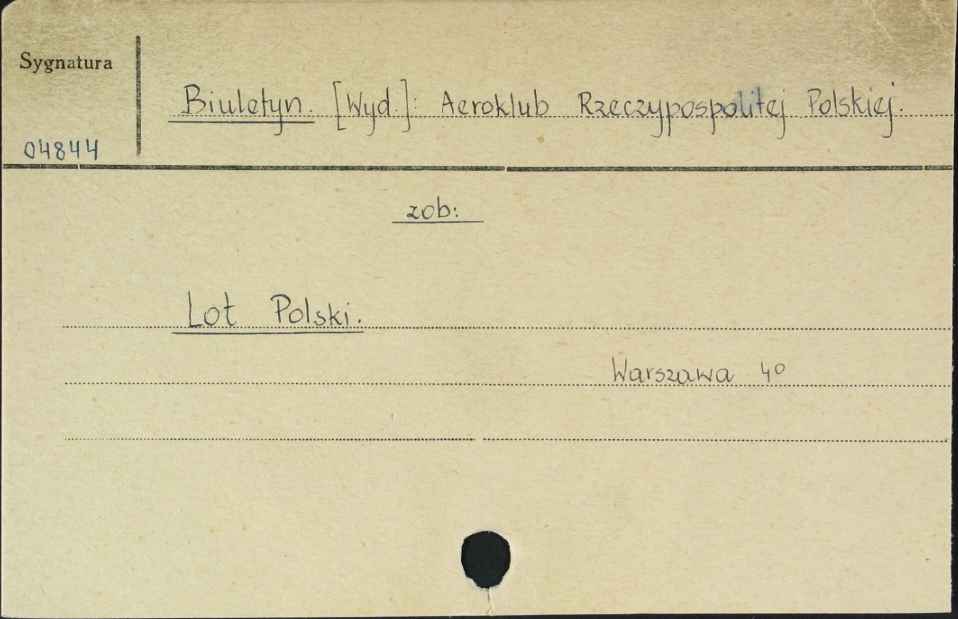 Sygnatura
Biuletyn. [Wyd.]: Aeroklub Rzeczypospolitej Polskiej.
04844
zob:
Lot Polski.
Warszawa 4°